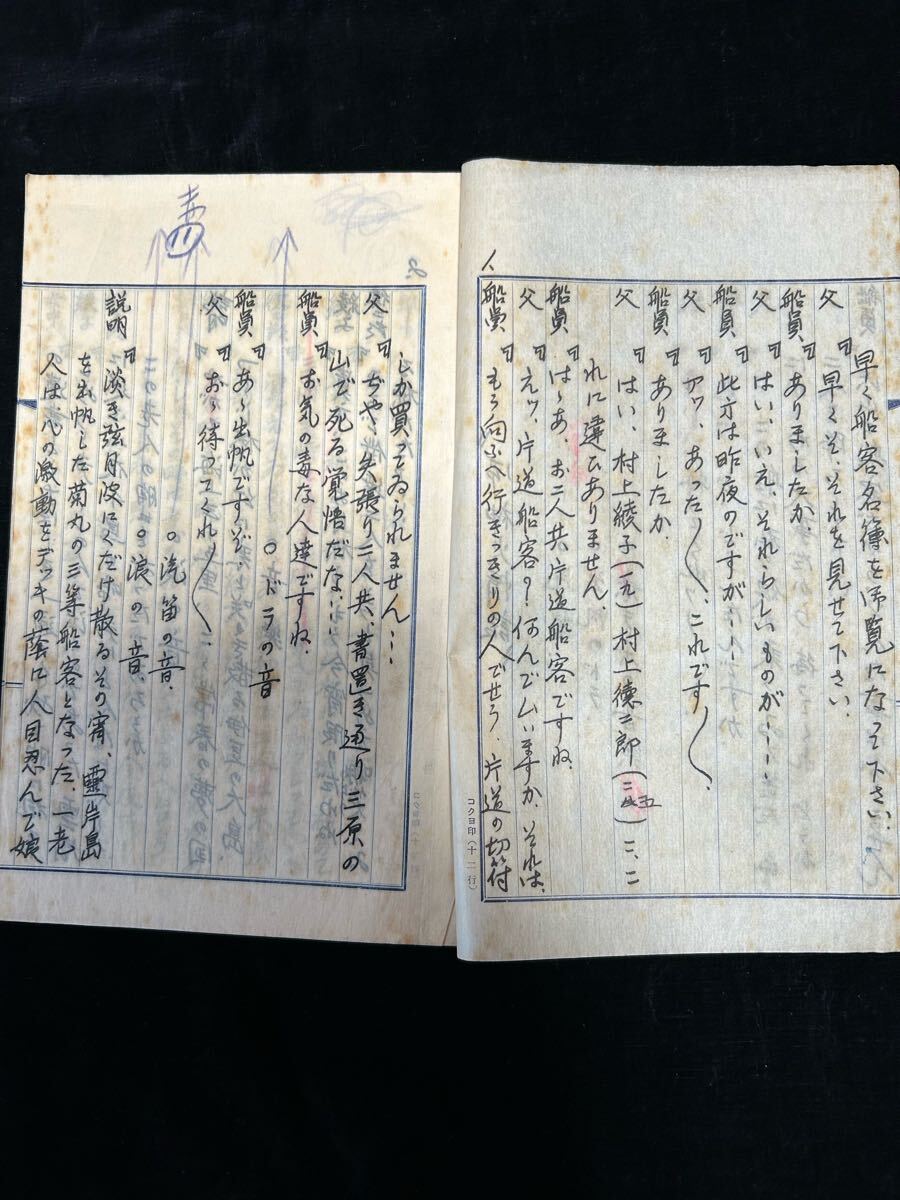 早く船客名簿を御覧になって下さい。
父『早くそ、それを見せて下さい。
船員『ありましたか、
父『はい、いえ、それらしいものが……
船員『此方は昨夜のですが……
父『アッ、あった〳〵、これです〳〵。
船員『ありましたか、
父『はい、村上綾子(一九)村上徳二郎(二五)こ、こ
れに違ひありません。
船員『は〻あ、お二人共片道船客ですね、
父『えッ、片道船客? 何んでムいますか、それは、
船員『もう向ふへ行きっきりの人でせう、片道の切符
コクヨ印(十二行)
2.
しか買ってゐられません……
父『ぢや、矢張り二人共、書置き通り三原の
山で死る覚悟だな……
船員『お気の毒な人達ですね。
○ドラの音
船員『あ〻出帆ですぞ、
父『お〻待ってくれ〳〵
○汽笛の音、
○浪の音、
説明『淡き弦月波にくだけ散るその宵、霊岸島
を出帆した菊丸の三等船客となった、一老
人は心の激動をデッキの蔭に人目忍んで娘